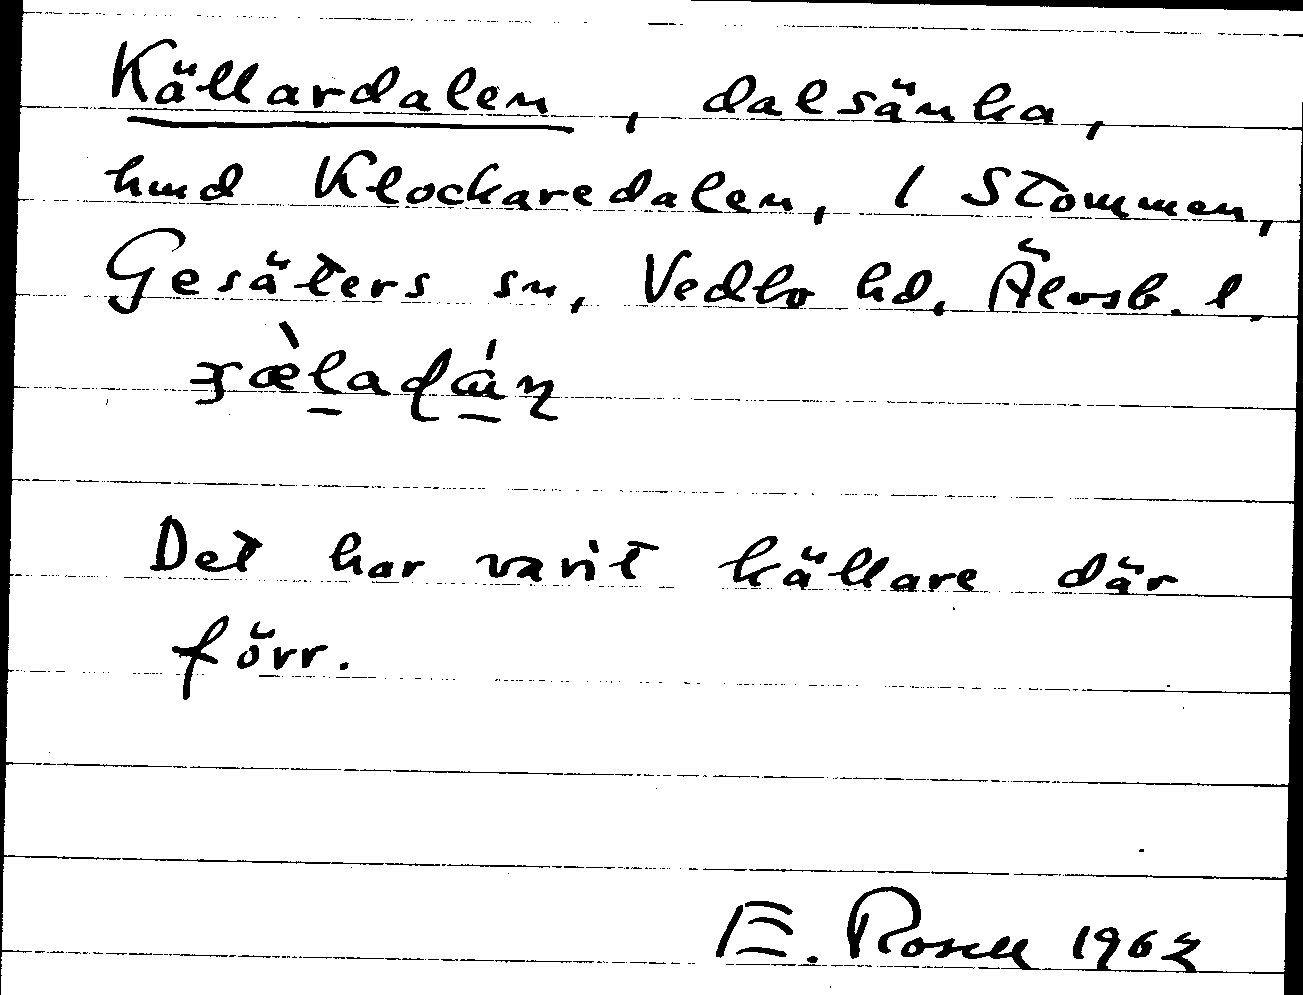 Källardalen, dalsänka,
hmd Klockaredalen, 1 Stommen,
Gesäters sn, Vedbo hd, Älvsb. l.
Det har varit källare där
förr.
E. Rosell 1963